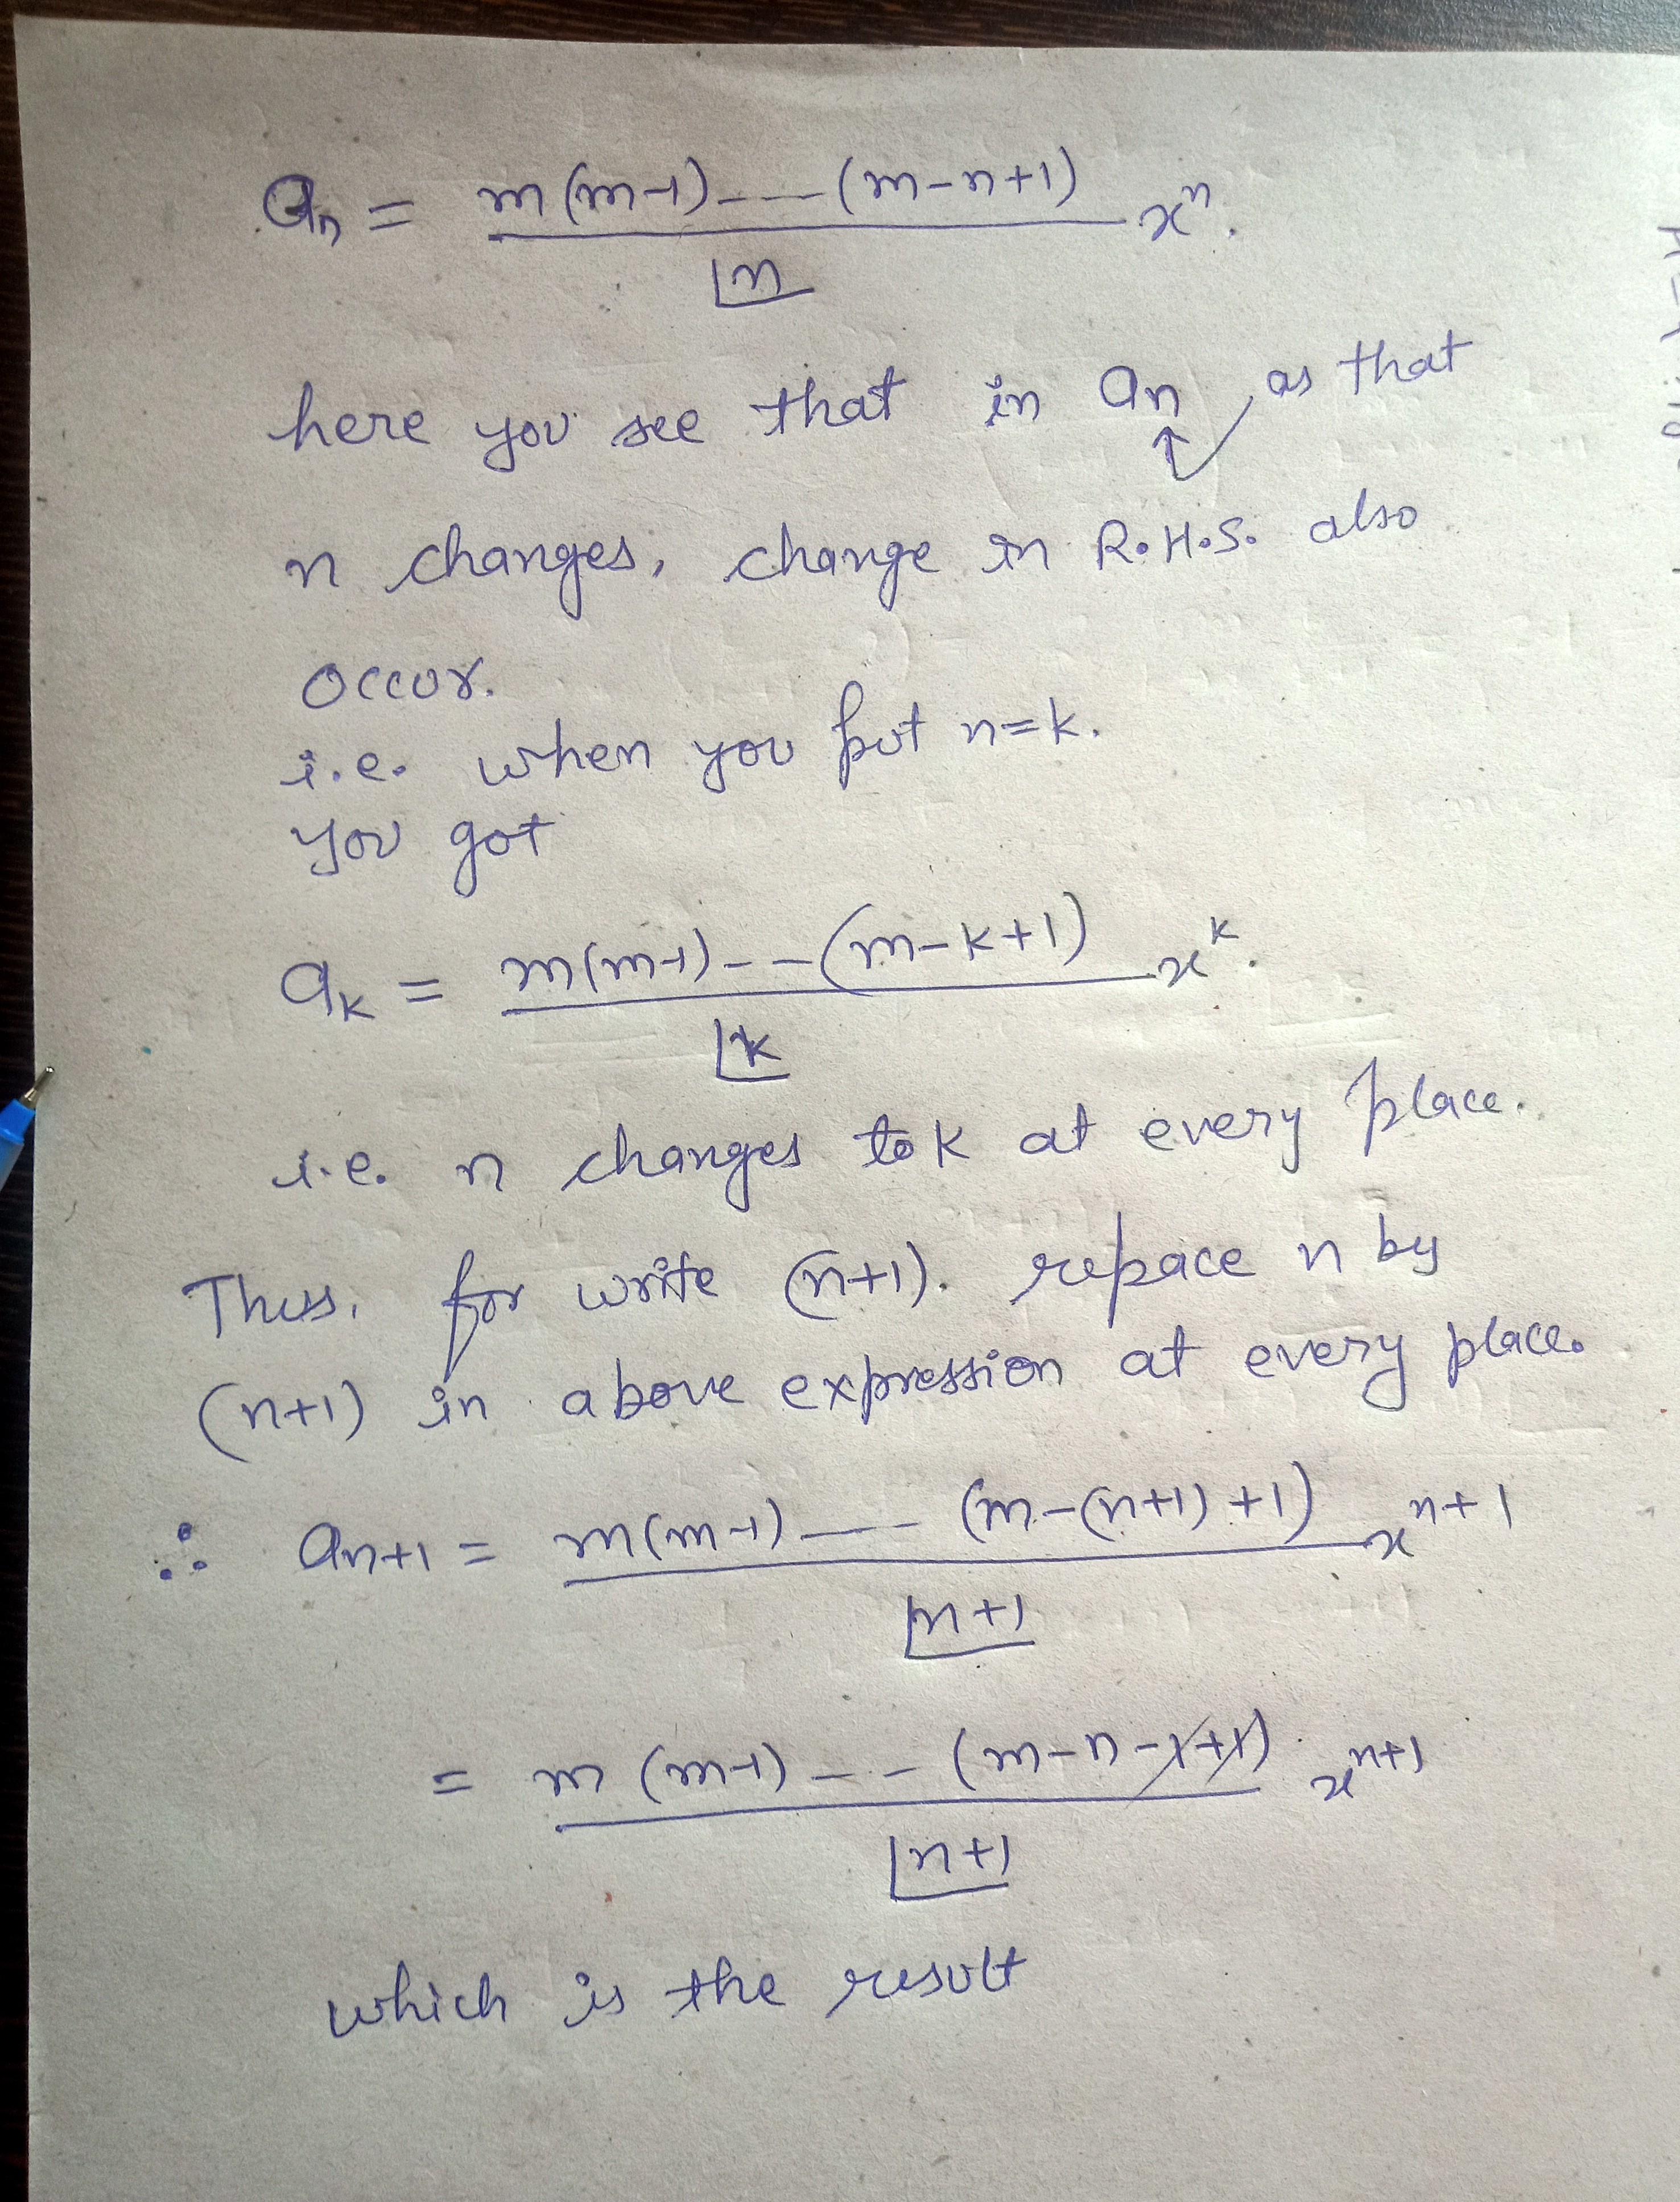 an = m(m-1)----(m-n+1) x^n.
⌊n
here you see that in an as that
↑
n changes, change in R.H.S. also
occur.
i.e. when you put n=k.
you got
ak = m(m-1)--(m-k+1) x^k.
⌊k
i.e. n changes to k at every place.
Thus, for write (n+1). repace n by
(n+1) in above expression at every place.
∴ an+1 = m(m-1)---- (m-(n+1)+1) x^n+1
⌊n+1
= m(m-1)--- (m-n-1+1) x^n+1
⌊n+1
which is the result